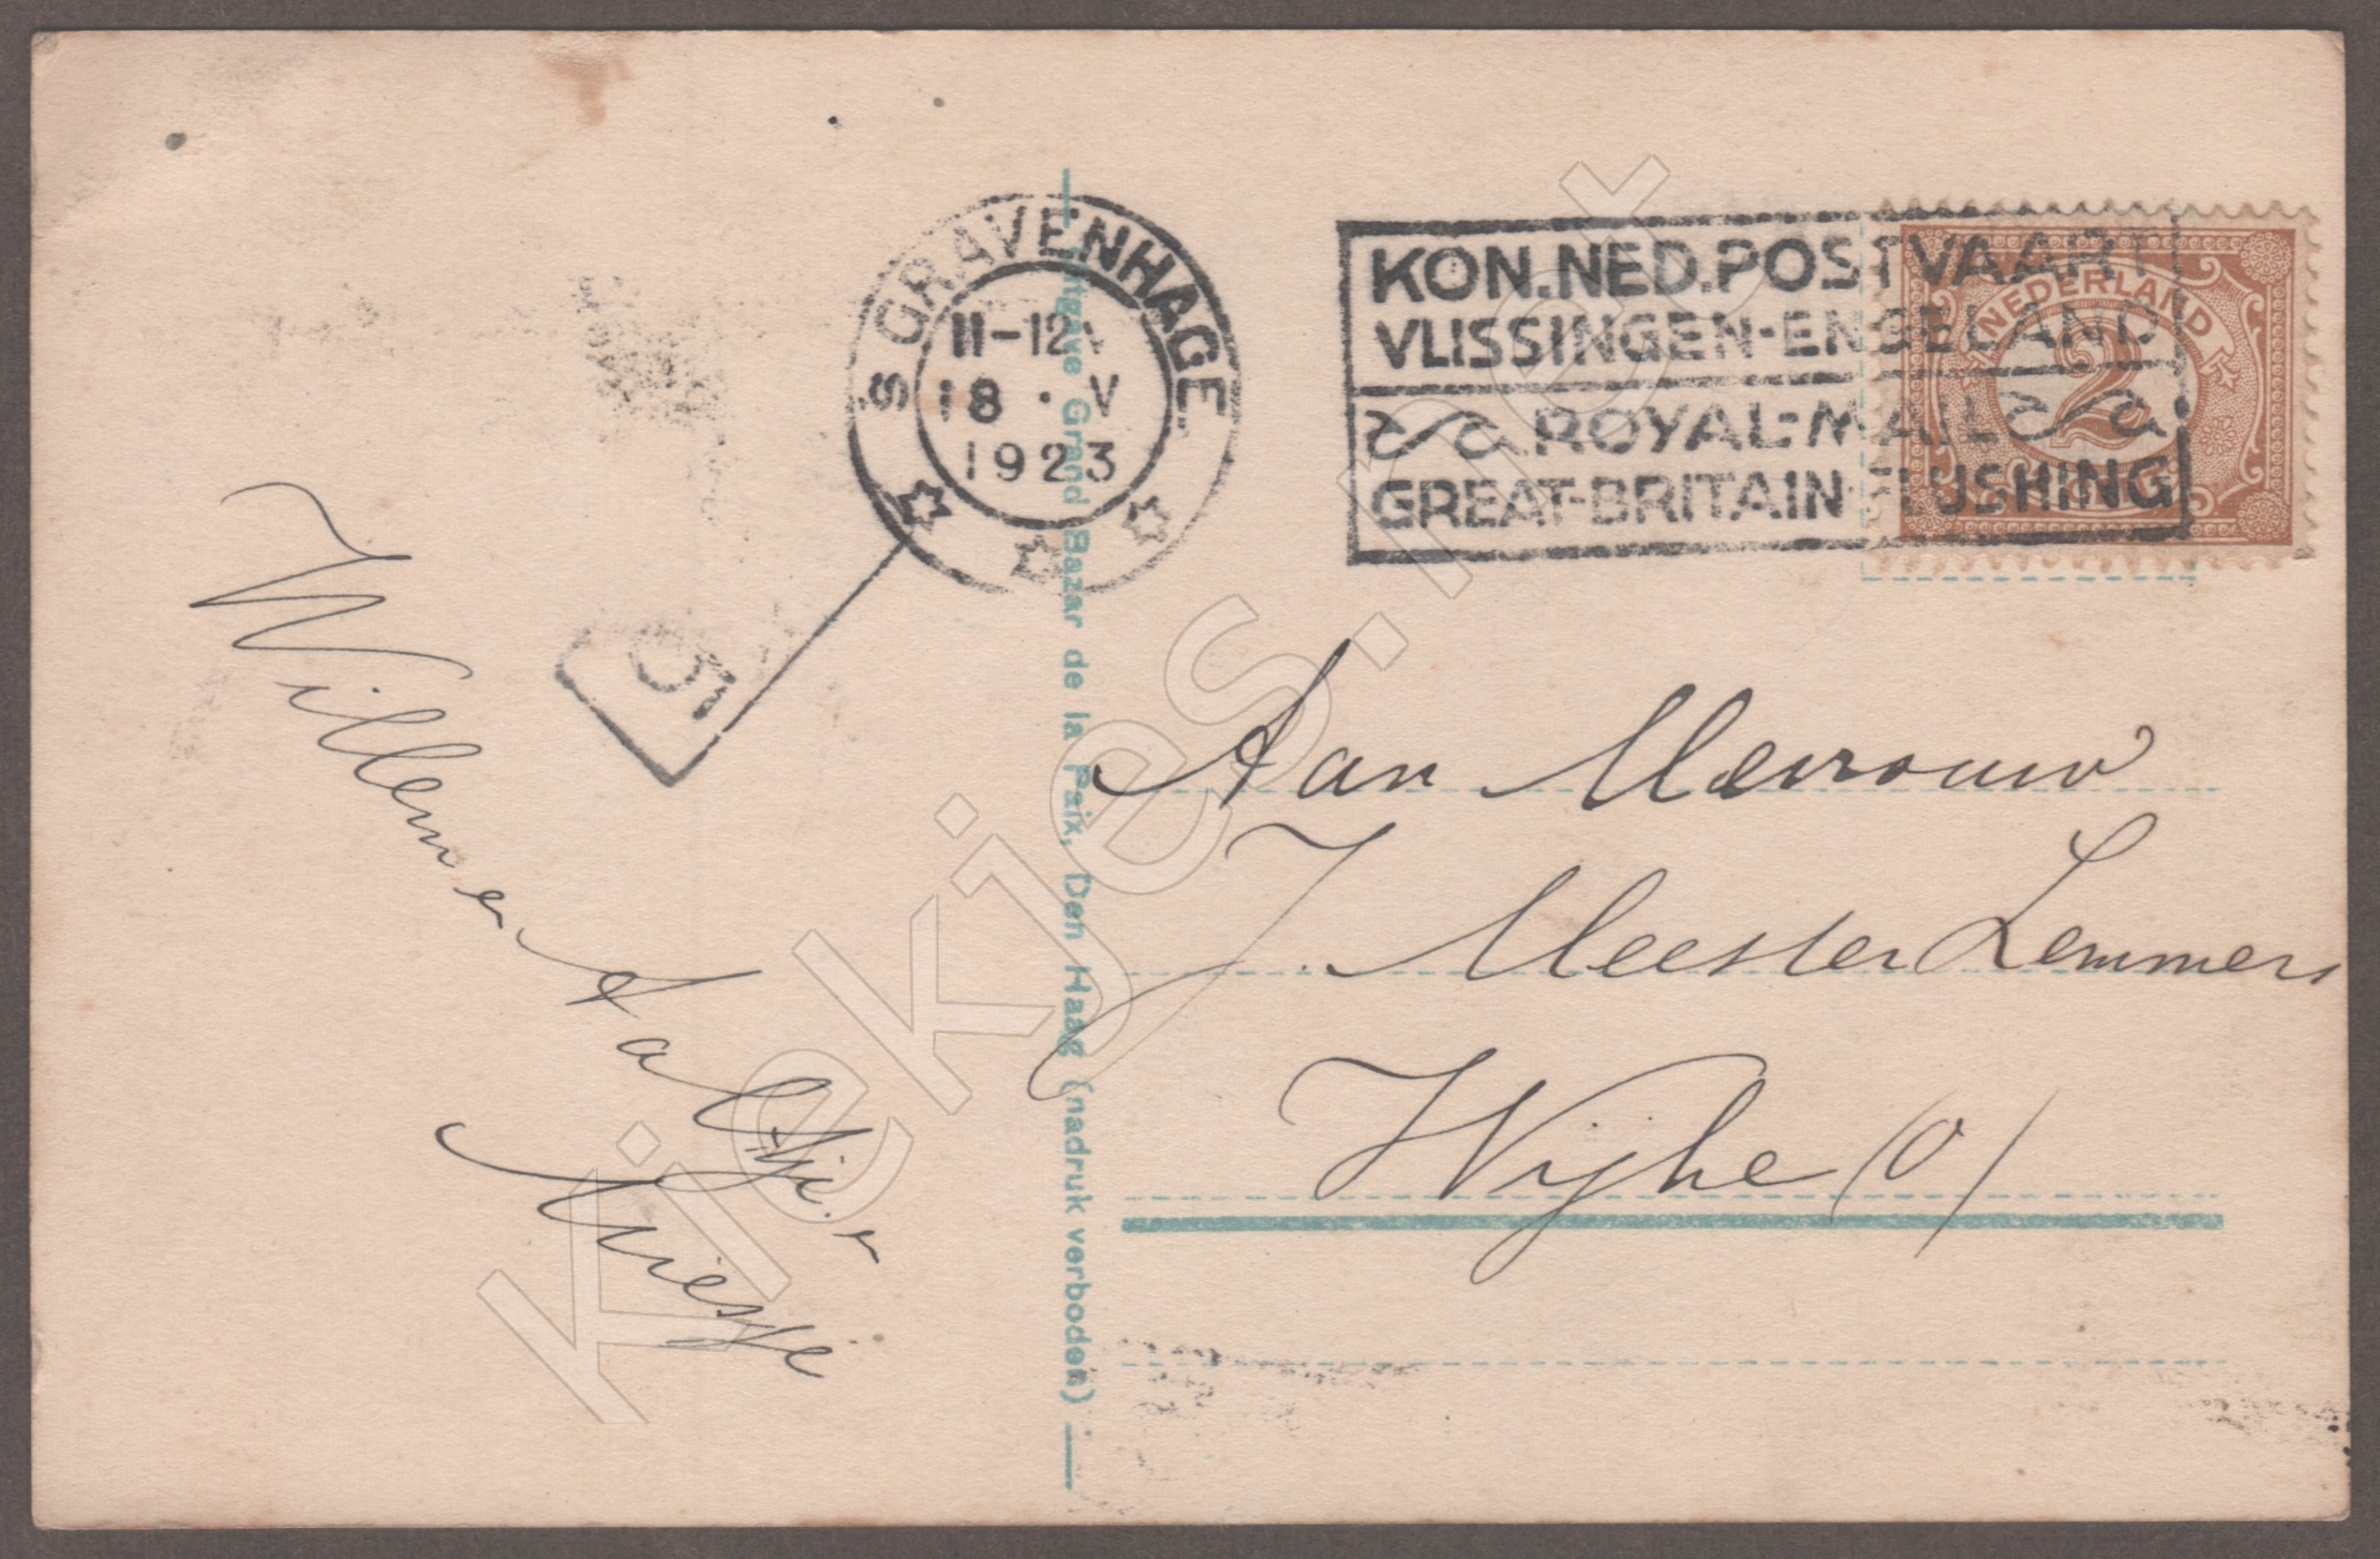 'S GRAVENHAGE
11-12 V
18 · V
1923
KON. NED. POSTVAART
VLISSINGEN-ENGELAND
ROYAL-MAIL
GREAT-BRITAIN-FLUSHING
NEDERLAND
2
CENT
5
Uitgave Grand Bazar de la Paix, Den Haag (nadruk verboden)
Willem en
Aaltje.
Aan Mevrouw
J. Meester Lemmers
Wijhe (O)
Kiekjes.net